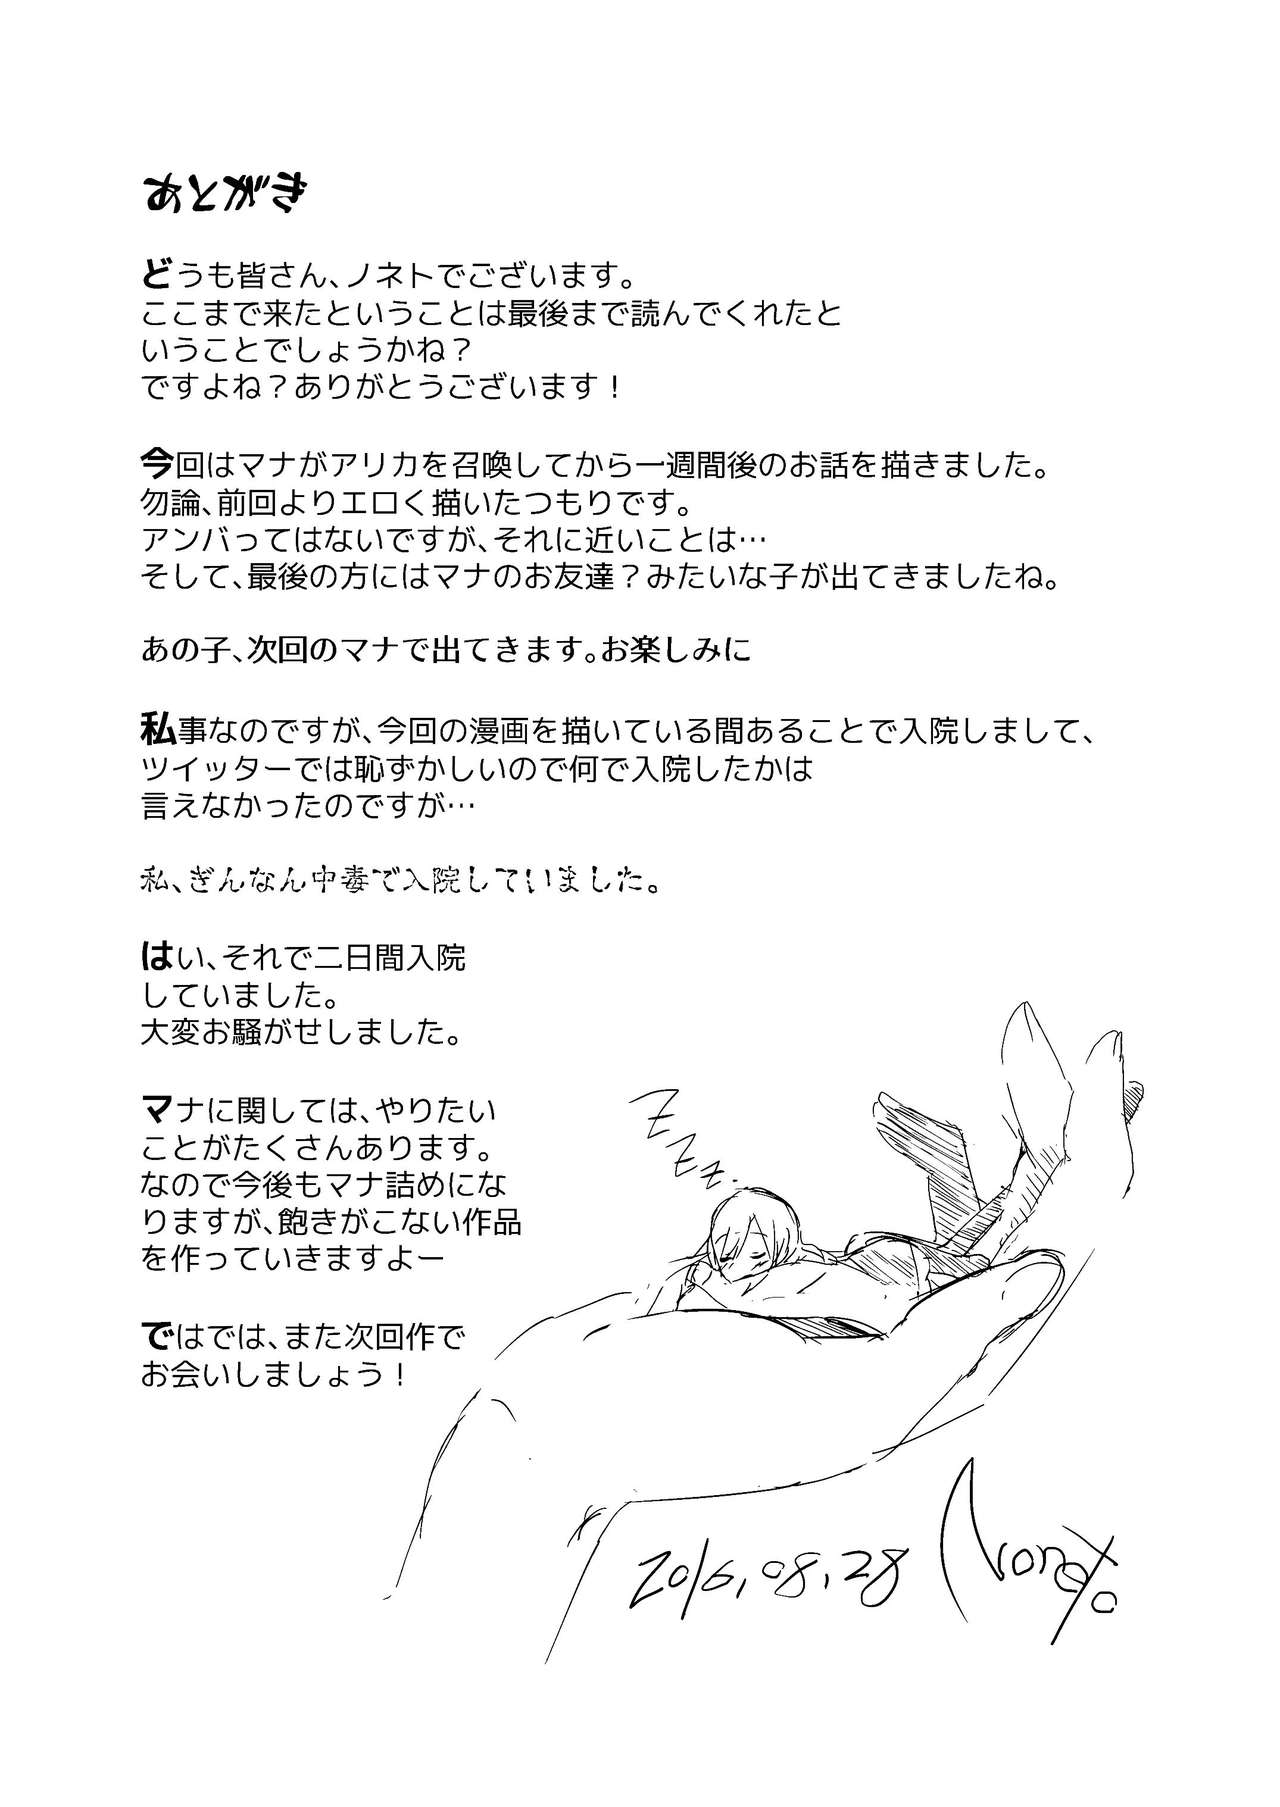 あとがき
どうも皆さん、ノネトでございます。
ここまで来たということは最後まで読んでくれたと
いうことでしょうかね？
ですよね？ありがとうございます！
今回はマナがアリカを召喚してから一週間後のお話を描きました。
勿論、前回よりエロく描いたつもりです。
アンバってはないですが、それに近いことは…
そして、最後の方にはマナのお友達？みたいな子が出てきましたね。
あの子、次回のマナで出てきます。お楽しみに
私事なのですが、今回の漫画を描いている間あることで入院しまして、
ツイッターでは恥ずかしいので何で入院したかは
言えなかったのですが…
私、ぎんなん中毒で入院していました。
はい、それで二日間入院
していました。
大変お騒がせしました。
マナに関しては、やりたい
ことがたくさんあります。
なので今後もマナ詰めにな
りますが、飽きがこない作品
を作っていきますよー
ではでは、また次回作で
お会いしましょう！
ZZZZ..
2016,08,28 Noneto